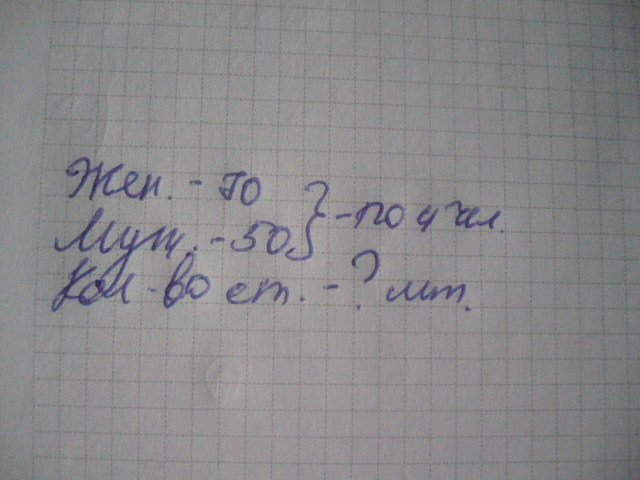 Жен. - 70 } - по 4 чел.
Муж. - 50
Кол-во ст. - ? шт.